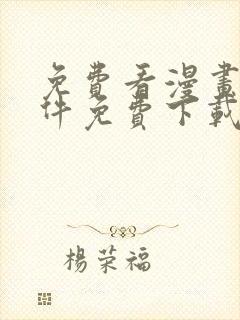 免費看漫畫
件免費下載
楊荣福